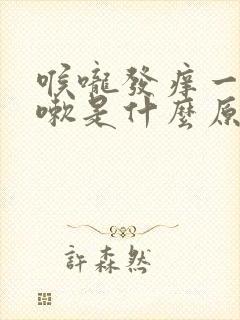 喉嚨發痒一
嗽是什麼原
許森然